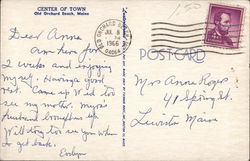 CENTER OF TOWN
Old Orchard Beach, Maine
OLD ORCHARD BEACH, ME.
JUL 8
1966
04064
POST CARD
Dear Anna
Am here for
2 weeks and enjoying
my self. Having a good
rest. Come up Wed to
see my mother. Myra's
husband brought us up
Will stop too see you when
I get back.
Evelyn
Mrs Anna Rogers
41 Spring St.
Lewiston Maine